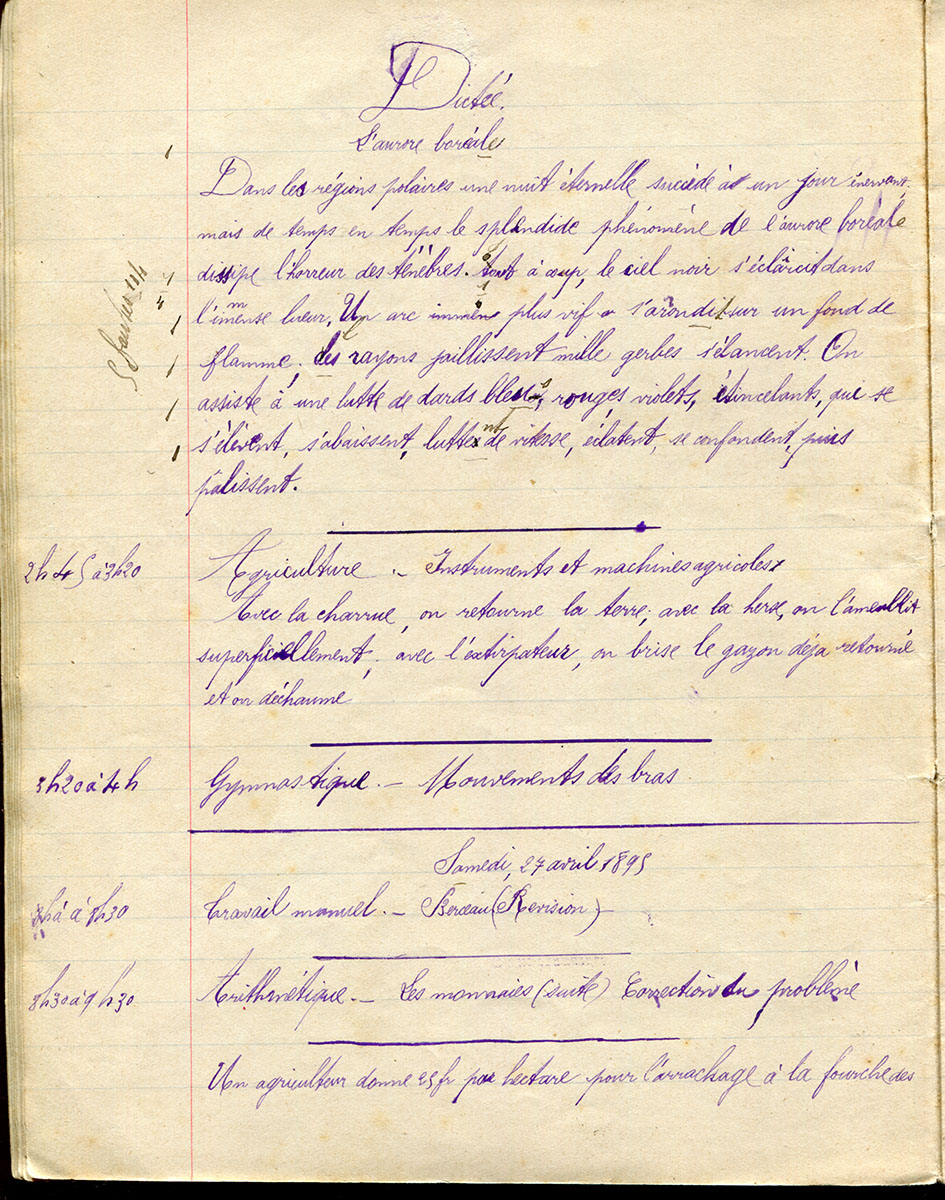 Dictée.
L'aurore boréale
Dans les régions polaires une nuit éternelle succède à un jour énervant;
mais de temps en temps le splendide phénomène de l'aurore boréale
dissipe l'horreur des ténèbres. tout à coup, le ciel noir s'éclârcit dans
l'immense lueur. Un arc immène plus vif s'arondit sur un fond de
flamme, des rayons jaillissent mille gerbes s'élancent. On
assiste à une lutte de dards bleus, rouges violets, étincelants, qui se
s'élèvent, s'abaissent, luttent de vitesse, éclatent, se confondent, puis
pâlissent.
5 fautes 1/4
2h45 à 3h20
Agriculture. - Instruments et machines agricoles
Avec la charrue, on retourne la terre; avec la herse, on l'ameublit
superficiellement; avec l'extirpateur, on brise le gazon déja retourné
et on déchaume
3h20 à 4h
Gymnastique. - Mouvements des bras
Samedi, 27 avril 1895
à 8h30
Travail manuel. - Berceau (Revision) -
8h30 à 9h30
Arithmétique. - Les monnaies (suite) Correction du problème
Un agriculteur donne 25 fr par hectare pour l'arrachage à la fourche des